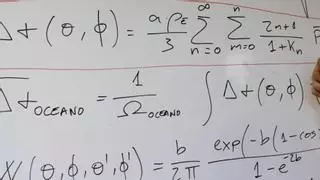 Δt(θ,φ) = aρ_E/3 ∑_{n=0}^{∞} ∑_{m=0}^{n} 2n+1/1+k_n P
Δt_OCEANO = 1/Ω_OCEANO ∫ Δt(θ,φ)
W(θ,φ,θ',φ') = b/2π exp(-b(1-cos/1-e^{-2b}